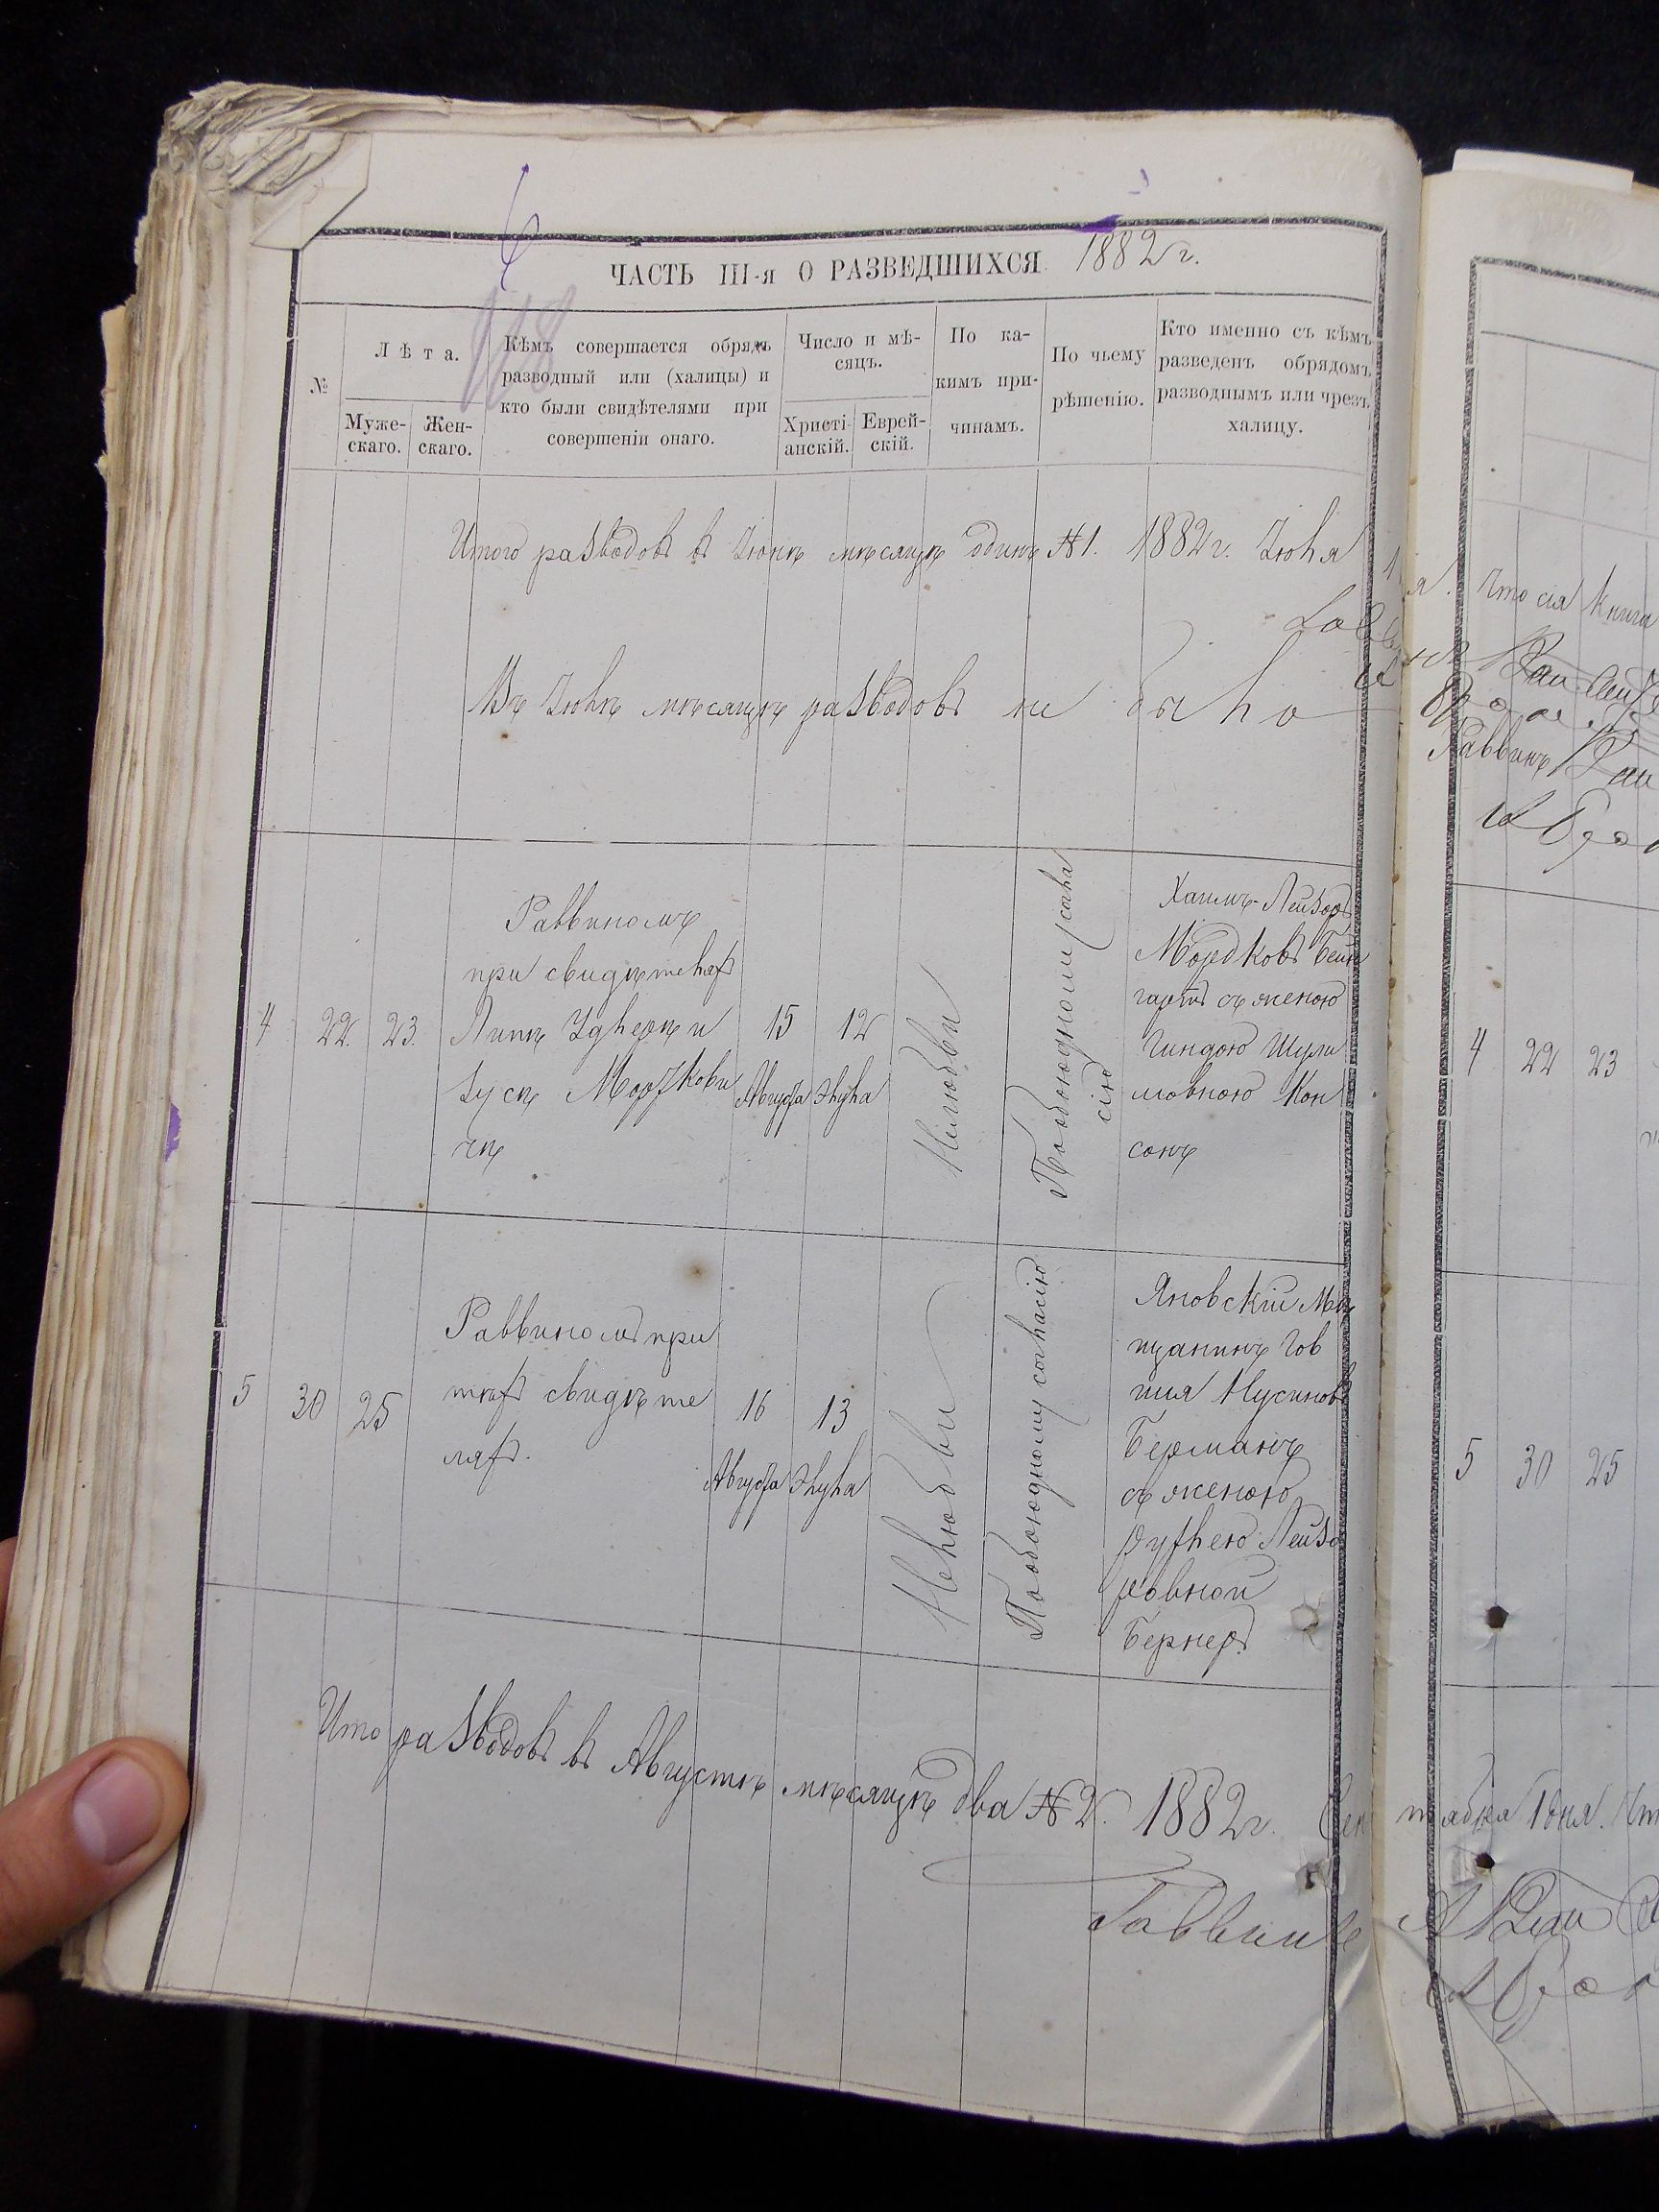 ЧАСТЬ III-я О РАЗВЕДШИХСЯ 1882 г.
№
Лѣта.
Мужескаго.
Женскаго.
Кѣмъ совершается обрядъ
разводный или (халицы) и
кто были свидѣтелями при
совершеніи онаго.
Число и мѣ-
сяцъ.
Христі-
анскій.
Еврей-
скій.
По ка-
кимъ при-
чинамъ.
По чьему
рѣшенію.
Кто именно съ кѣмъ
разведенъ обрядомъ
разводнымъ или чрезъ
халицу.
Итого разводовъ въ Іюнѣ мѣсяцѣ одинъ №1. 1882 г. Іюля
что сія книга
Въ Іюлѣ мѣсяцѣ разводовъ не было
Раввинъ
4
22.
23.
Раввиномъ
при свидѣтеляхъ
Липѣ Удлерѣ и
Зусѣ Мордкови
чѣ
15
Августа
12
Элула
Нелюбви
По обоюдному согла
сію
Хаимъ-Лейзоръ
Мордковъ Бейн
гартъ съ женою
Гиндою Шули
мовною Кон
сонъ
4 22 23
5
30
25
Раввиномъ при
тѣхъ свидѣте
ляхъ.
16
Августа
13
Элула
Нелюбви
По обоюдному согласію
Яновскій Мѣ
щанинъ Гов
шия Нусиновъ
Берманъ
съ женою
Рухлею Лейзо
ровной
Бернеръ
5 30 25
Ито разводовъ въ Августѣ мѣсяцѣ два №2. 1882 г. Сен тября 1 дня.
Раввинъ